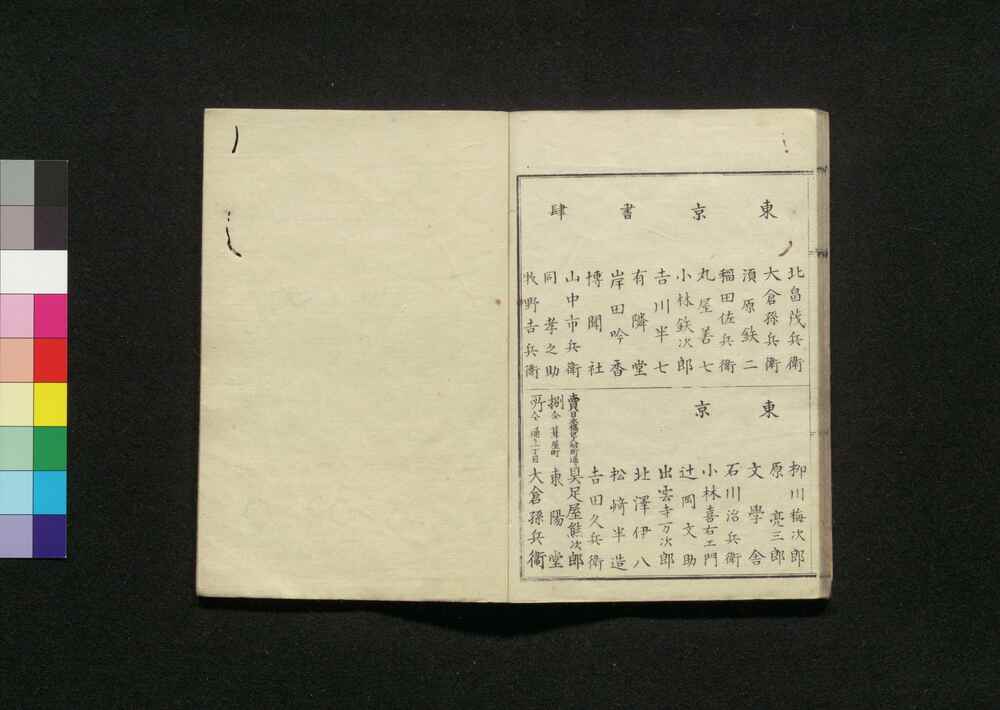 東京書肆
北畠茂兵衛
大倉孫兵衛
須原鉄二
稲田佐兵衛
丸屋善七
小林鉄次郎
吉川半七
有隣堂
岸田吟香
博聞社
山中市兵衛
同孝之助
牧野吉兵衛
東京
柳川梅次郎
原亮三郎
文學舎
石川治兵衛
小林喜右エ門
辻岡文助
出雲寺万次郎
北澤伊八
松﨑半造
吉田久兵衛
賣
呉足屋熊次郎
捌 仝
屋町 東陽堂
所 仝 通一丁目 大倉孫兵衛